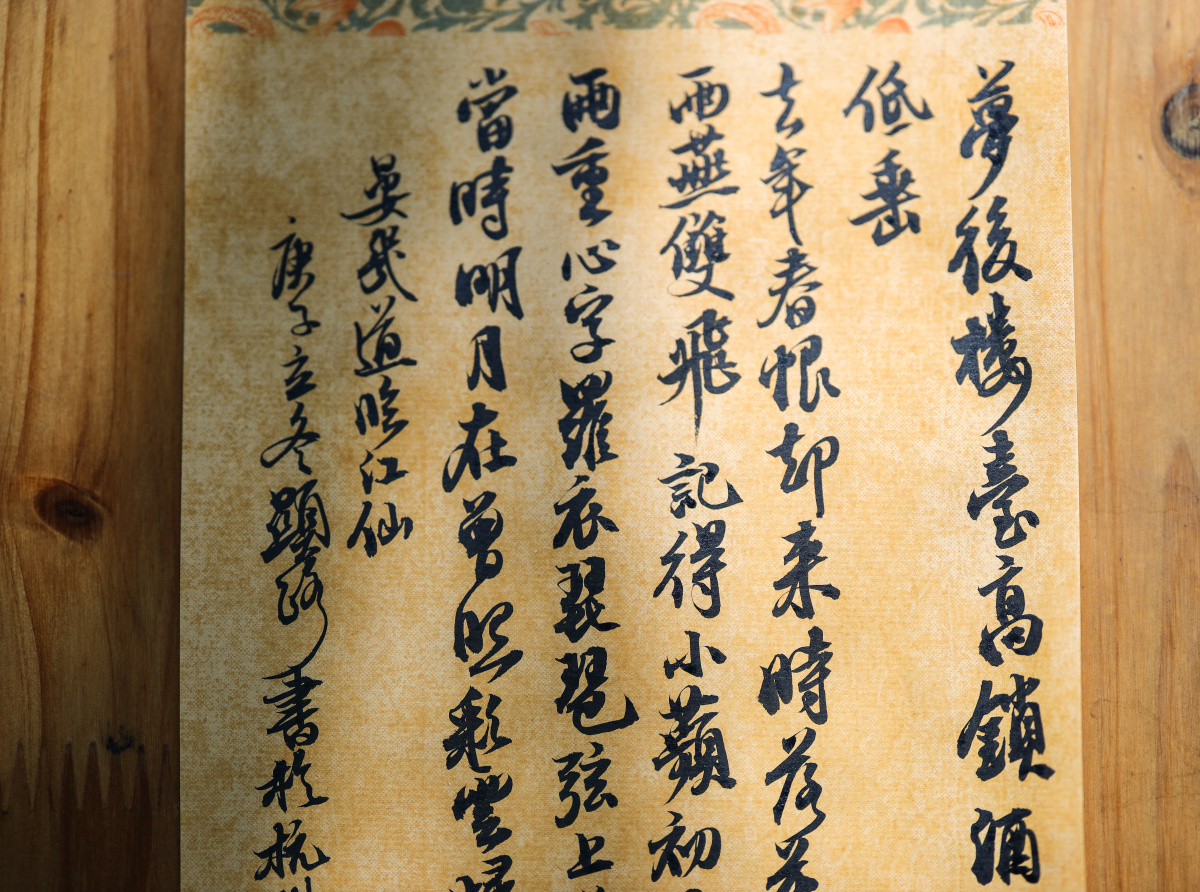 夢後樓臺高鎖酒
低垂
去年春恨却来時落花
雨燕雙飛記得小蘋初
兩重心字羅衣琵琶弦上
當時明月在曾照彩雲歸
晏幾道臨江仙
庚子立冬顯書於杭州